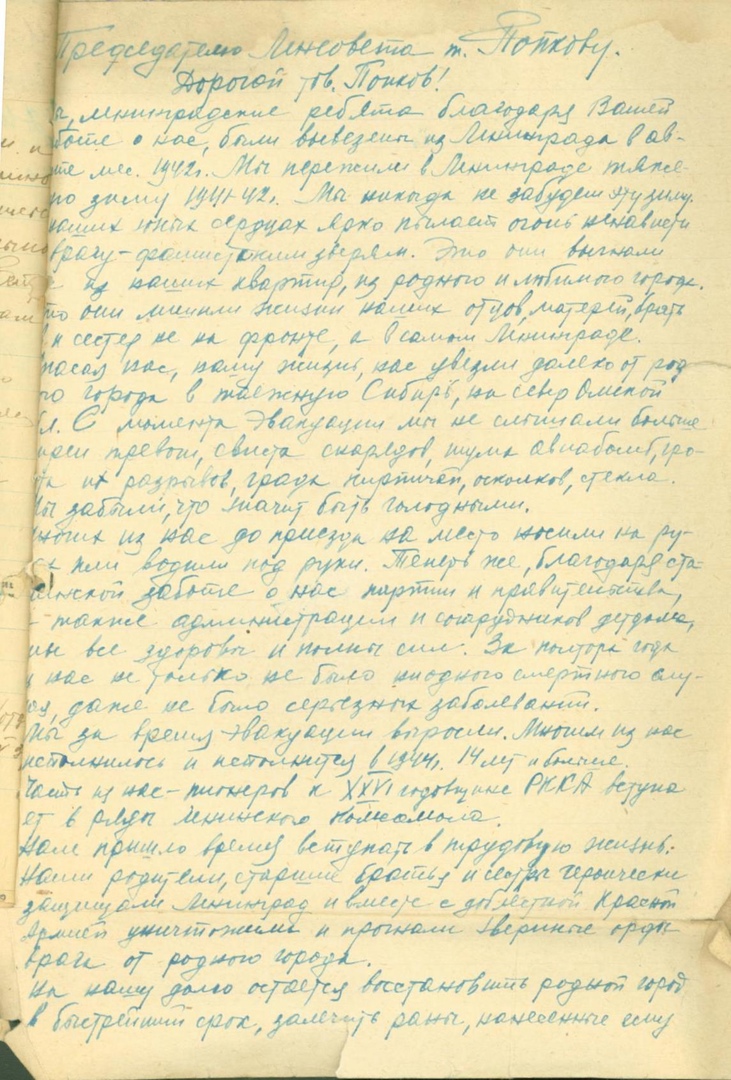 Председателю Ленсовета т. Попкову.
Дорогой тов. Попков!
ы, ленинградские ребята благодаря Вашей
боте о нас, были вывезены из Ленинграда в ав-
те мес. 1942г. Мы пережили в Ленинграде тяже-
ю зиму 1941-42г. Мы никогда не забудем эту зиму.
наших юных сердцах ярко пылает огонь ненависти
врагу - фашистским зверям. Это они выгнали
с из наших квартир, из родного и любимого города.
то они лишили жизни наших отцов, матерей, брать
в и сестер не на фронте, а в самом Ленинграде.
пасая нас, нашу жизнь, нас увезли далеко от род
ого города в таежную Сибирь, на север Омской
л. С момента эвакуации мы не слышали больше
тревог, свиста снарядов, шума авиабомб, гро-
та их разрывов, града кирпичей, осколков, стекла.
ы забыли, что значит быть голодными.
ногих из нас до приезда на место носили на ру-
ах или водили под руки. Теперь же, благодаря ста-
инской заботе о нас партии и правительства,
также администрации и сотрудников детдома,
мы все здоровы и полны сил. За полтора года
у нас не только не было ниодного смертного слу-
ая, даже не было серьезных заболеваний.
Мы за время эвакуации выросли. Многим из нас
исполнилось и исполнится в 1944г. 14 лет и больше.
Часть из нас - пионеров к XXVI годовщине РККА вступа
ет в ряды ленинского комсомола.
Нам пришло время вступать в трудовую жизнь.
Наши родители, старшие братья и сестры героически
защищали Ленинград и вместе с доблестной Красной
Армией уничтожили и прогнали звериные орды
врага от родного города.
На нашу долю остается восстановить родной город
в быстрейший срок, залечить раны, нанесенные ему